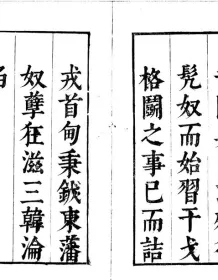 髡奴而始習干戈
格鬬之事已而詰
戎首甸秉鉞東藩
奴孽狂滋三韓淪